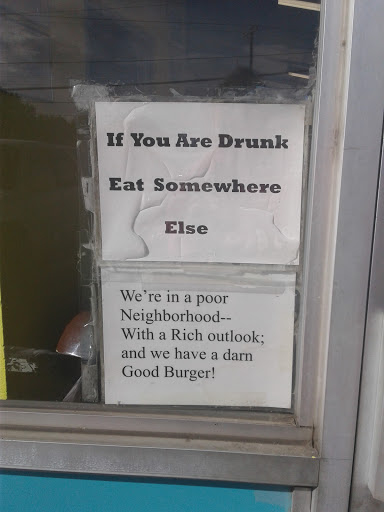 If You Are Drunk
Eat Somewhere
Else
We're in a poor
Neighborhood--
With a Rich outlook;
and we have a darn
Good Burger!